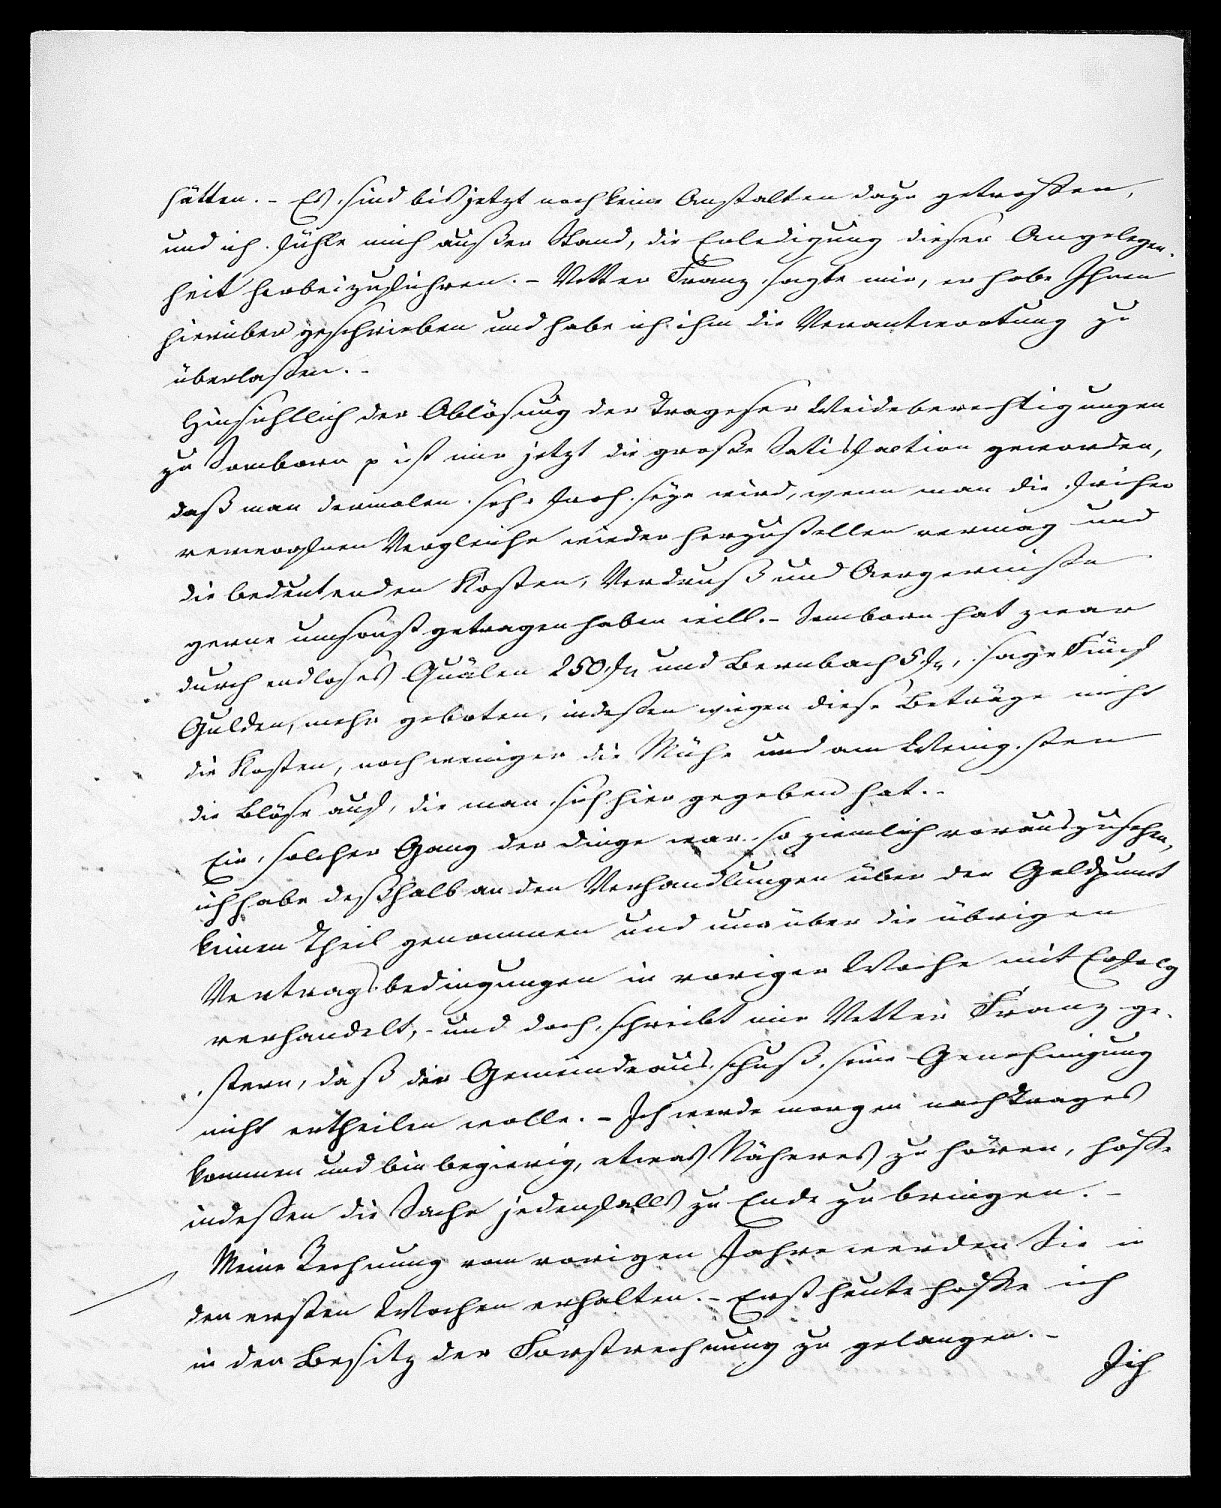 hätten. - Es sind bis jetzt noch keine Anstalten dazu getroffen,
und ich fühle mich außer Stand, die Erledigung dieser Angelegen-
heit herbeizuführen. - Vetter Franz sagte mir, er habe Ihnen
hierüber geschrieben und habe ich ihm die Verantwortung zu
überlaßen. -
Hinsichtlich der Ablösung der Trageser Weideberechtigungen
zu Somborn p ist mir jetzt die große Satisfaction geworden,
daß man dermalen sehr froh seyn wird, wenn man die früher
verworfenen Vergleiche wieder herzustellen vermag und
die bedeutenden Kosten, Verdruß und Aergerniße
gerne umsonst getragen haben will. - Somborn hat zwar
durch endloses Quälen 250 fl und Bernbach 5 fl, sage Fünf
Gulden, mehr geboten, indeßen wiegen diese Beträge nicht
die Kosten, noch weniger die Mühe und am Wenigsten
die Blöse auf, die man sich hier gegeben hat. -
Ein solcher Gang der Dinge war so ziemlich vorauszusehen,
ich habe deßhalb an den Verhandlungen über den Geldpunct
keinen Theil genommen und nur über die übrigen
Vertragsbedingungen in voriger Woche mit Erfolg
verhandelt, - und doch schreibt mir Vetter Franz ge-
stern, daß der Gemeindeausschuß seine Genehmigung
nicht ertheilen wolle. - Ich werde morgen nach Trages
kommen und bin begierig, etwas Näheres zu hören, hoffe
indeßen die Sache jedenfalls zu Ende zu bringen. -
Meine Rechnung vom vorigen Jahre werden Sie in
den ersten Wochen erhalten. - Erst heute hoffe ich
in den Besitz der Forstrechnung zu gelangen. -
Ich